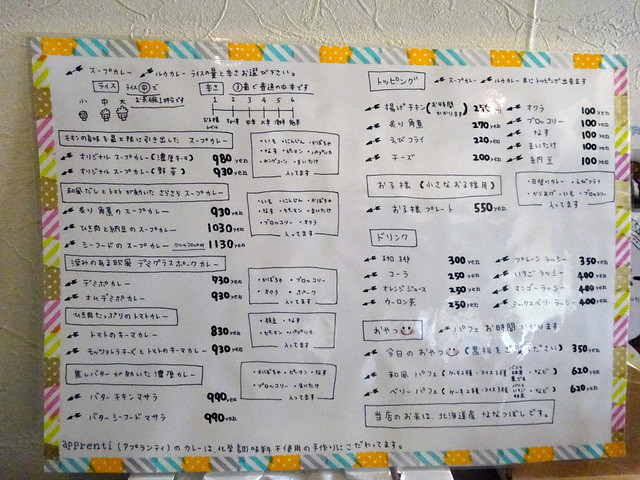 スープカレー ルウカレー ライスの量と辛さお選び下さい。
ライス ライス中で お茶碗1杯分です
小 中 大
辛さ ③番で普通の中辛です
1 2 3 4 5 6
チキンの旨味を最大限に引き出した スープカレー
オリジナル スープカレー(濃厚キーマ) 980yen
オリジナル スープカレー(野菜) 930yen
・いも ・にんじん ・かぼちゃ
・なす ・ピーマン
・まいたけ
入ってます
和風だしとトマトが効いた さらさら スープカレー
炙り角煮のスープカレー 930yen
ひき肉と納豆のスープカレー 1030yen
シーフードのスープカレー 1130yen
・いも ・にんじん ・かぼちゃ
・なす ・ピーマン ・まいたけ
・ブロッコリー ・オクラ
入ってます
深みのある欧風 デミグラスポークカレー
デミポカレー 730yen
オムデミポカレー 930yen
・かぼちゃ ・ブロッコリー
・オクラ ・ポーク
入ってます
ひき肉たっぷりのトマトカレー
トマトのキーマカレー 830yen
モッツァレラチーズとトマトのキーマカレー 930yen
・枝豆 ・なす
・ピーマン ・パプリカ
入ってます
焦しバターが効いた 濃厚カレー
バターチキンマサラ 990yen
バターシーフードマサラ 990yen
・かぼちゃ ・ピーマン ・なす
・ブロッコリー ・まいたけ
入ってます
apprenti (アプランティ)のカレーは、化学調味料不使用の手作りにこだわってます。
トッピング スープカレー ルウカレー 共にトッピング出来ます
揚げチキン(お時間かかります)
炙り角煮 270yen
えびフライ 220yen
チーズ 200yen
オクラ 100yen
ブロッコリー 100yen
なす 100yen
まいたけ 100yen
納豆 100yen
お子様 (小さなお子様用)
お子様プレート 550yen
・日替りカレー ・えびフライ
・からあげ ・いも ・ブロッコリー
入ってます
ドリンク
珈琲 300yen
コーラ 250yen
オレンジジュース 250yen
ウーロン茶 250yen
プレーンラッシー 350yen
いちごラッシー 400yen
マンゴーラッシー 400yen
ミックスベリーラッシー 400yen
おやつ パフェお時間かかります
今日のおやつ (黒板をご覧ください) 350yen
和風パフェ (ケーキ2種・アイス3種・など) 620yen
ベリーパフェ (ケーキ2種・アイス3種・など) 620yen
当店のお米は、北海道産 ななつぼしです。